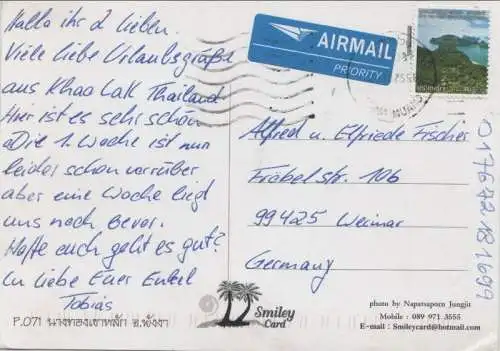 Hallo ihr 2 lieben.
Viele liebe Urlaubsgrüße
aus Khao Lak Thailand
Hier ist es sehr schön
Die 1. Woche ist nun
leider schon vorrüber
aber eine Woche liegt
uns noch Bevor.
Hoffe euch geht es gut?
In Liebe Euer Enkel
Tobias
P.071 นางทองเขาหลัก จ.พังงา
AIRMAIL
PRIORITY
Alfred u. Elfriede Fischer
Fröbelstr. 10b
99425 Weimar
Germany
Smiley
Card
photo by Napatsaporn Jungjit
Mobile : 089 971 3555
E-mail : Smileycard@hotmail.com